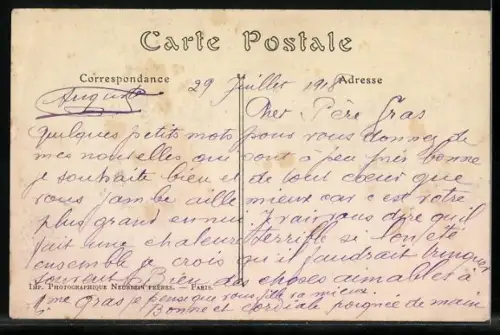 Carte Postale
Correspondance
Adresse
29 Juillet 1918
Auguste
Cher Père Gras
Quelques petits mots pour vous donner de
mes nouvelles, qui sont à peu près bonne
je souhaite bien et de tout cœur que
vous jambe aille mieux car c'est votre
plus grand ennui. J vais vous dire qu'il
fait une chaleur terrible si l'on été
ensemble je crois qu'il faudrait trinquer
souvent Bien des choses aimables à
Mme gras je pense que vous fille va mieux.
Bonne et cordiale poignée de main
Imp. Photographique Neurdein Frères. — Paris.